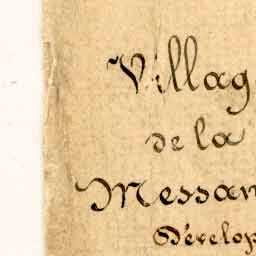 Villag
de la
Messan
Dévelop